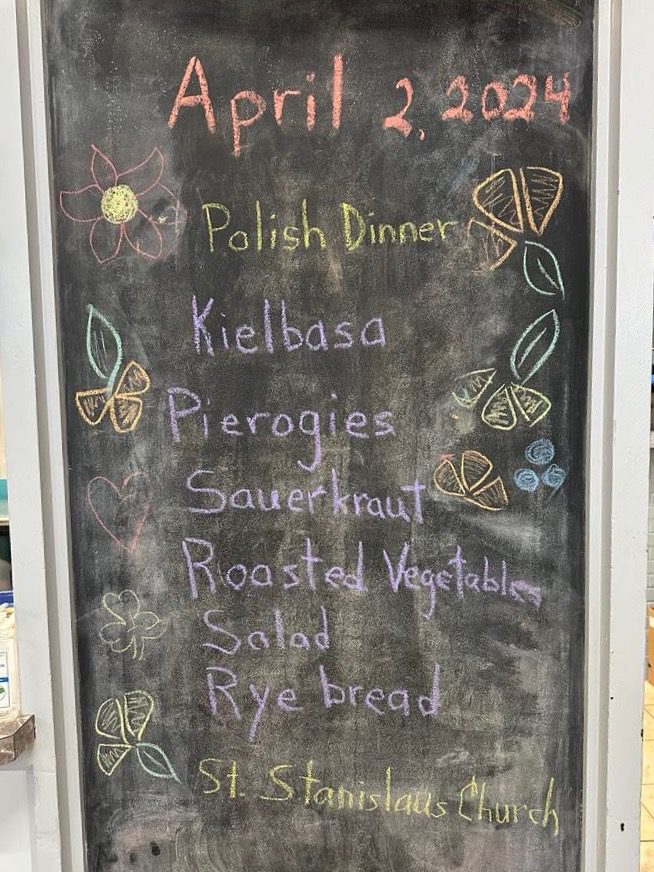 April 2, 2024
Polish Dinner
Kielbasa
Pierogies
Sauerkraut
Roasted Vegetables
Salad
Rye bread
St. Stanislaus Church